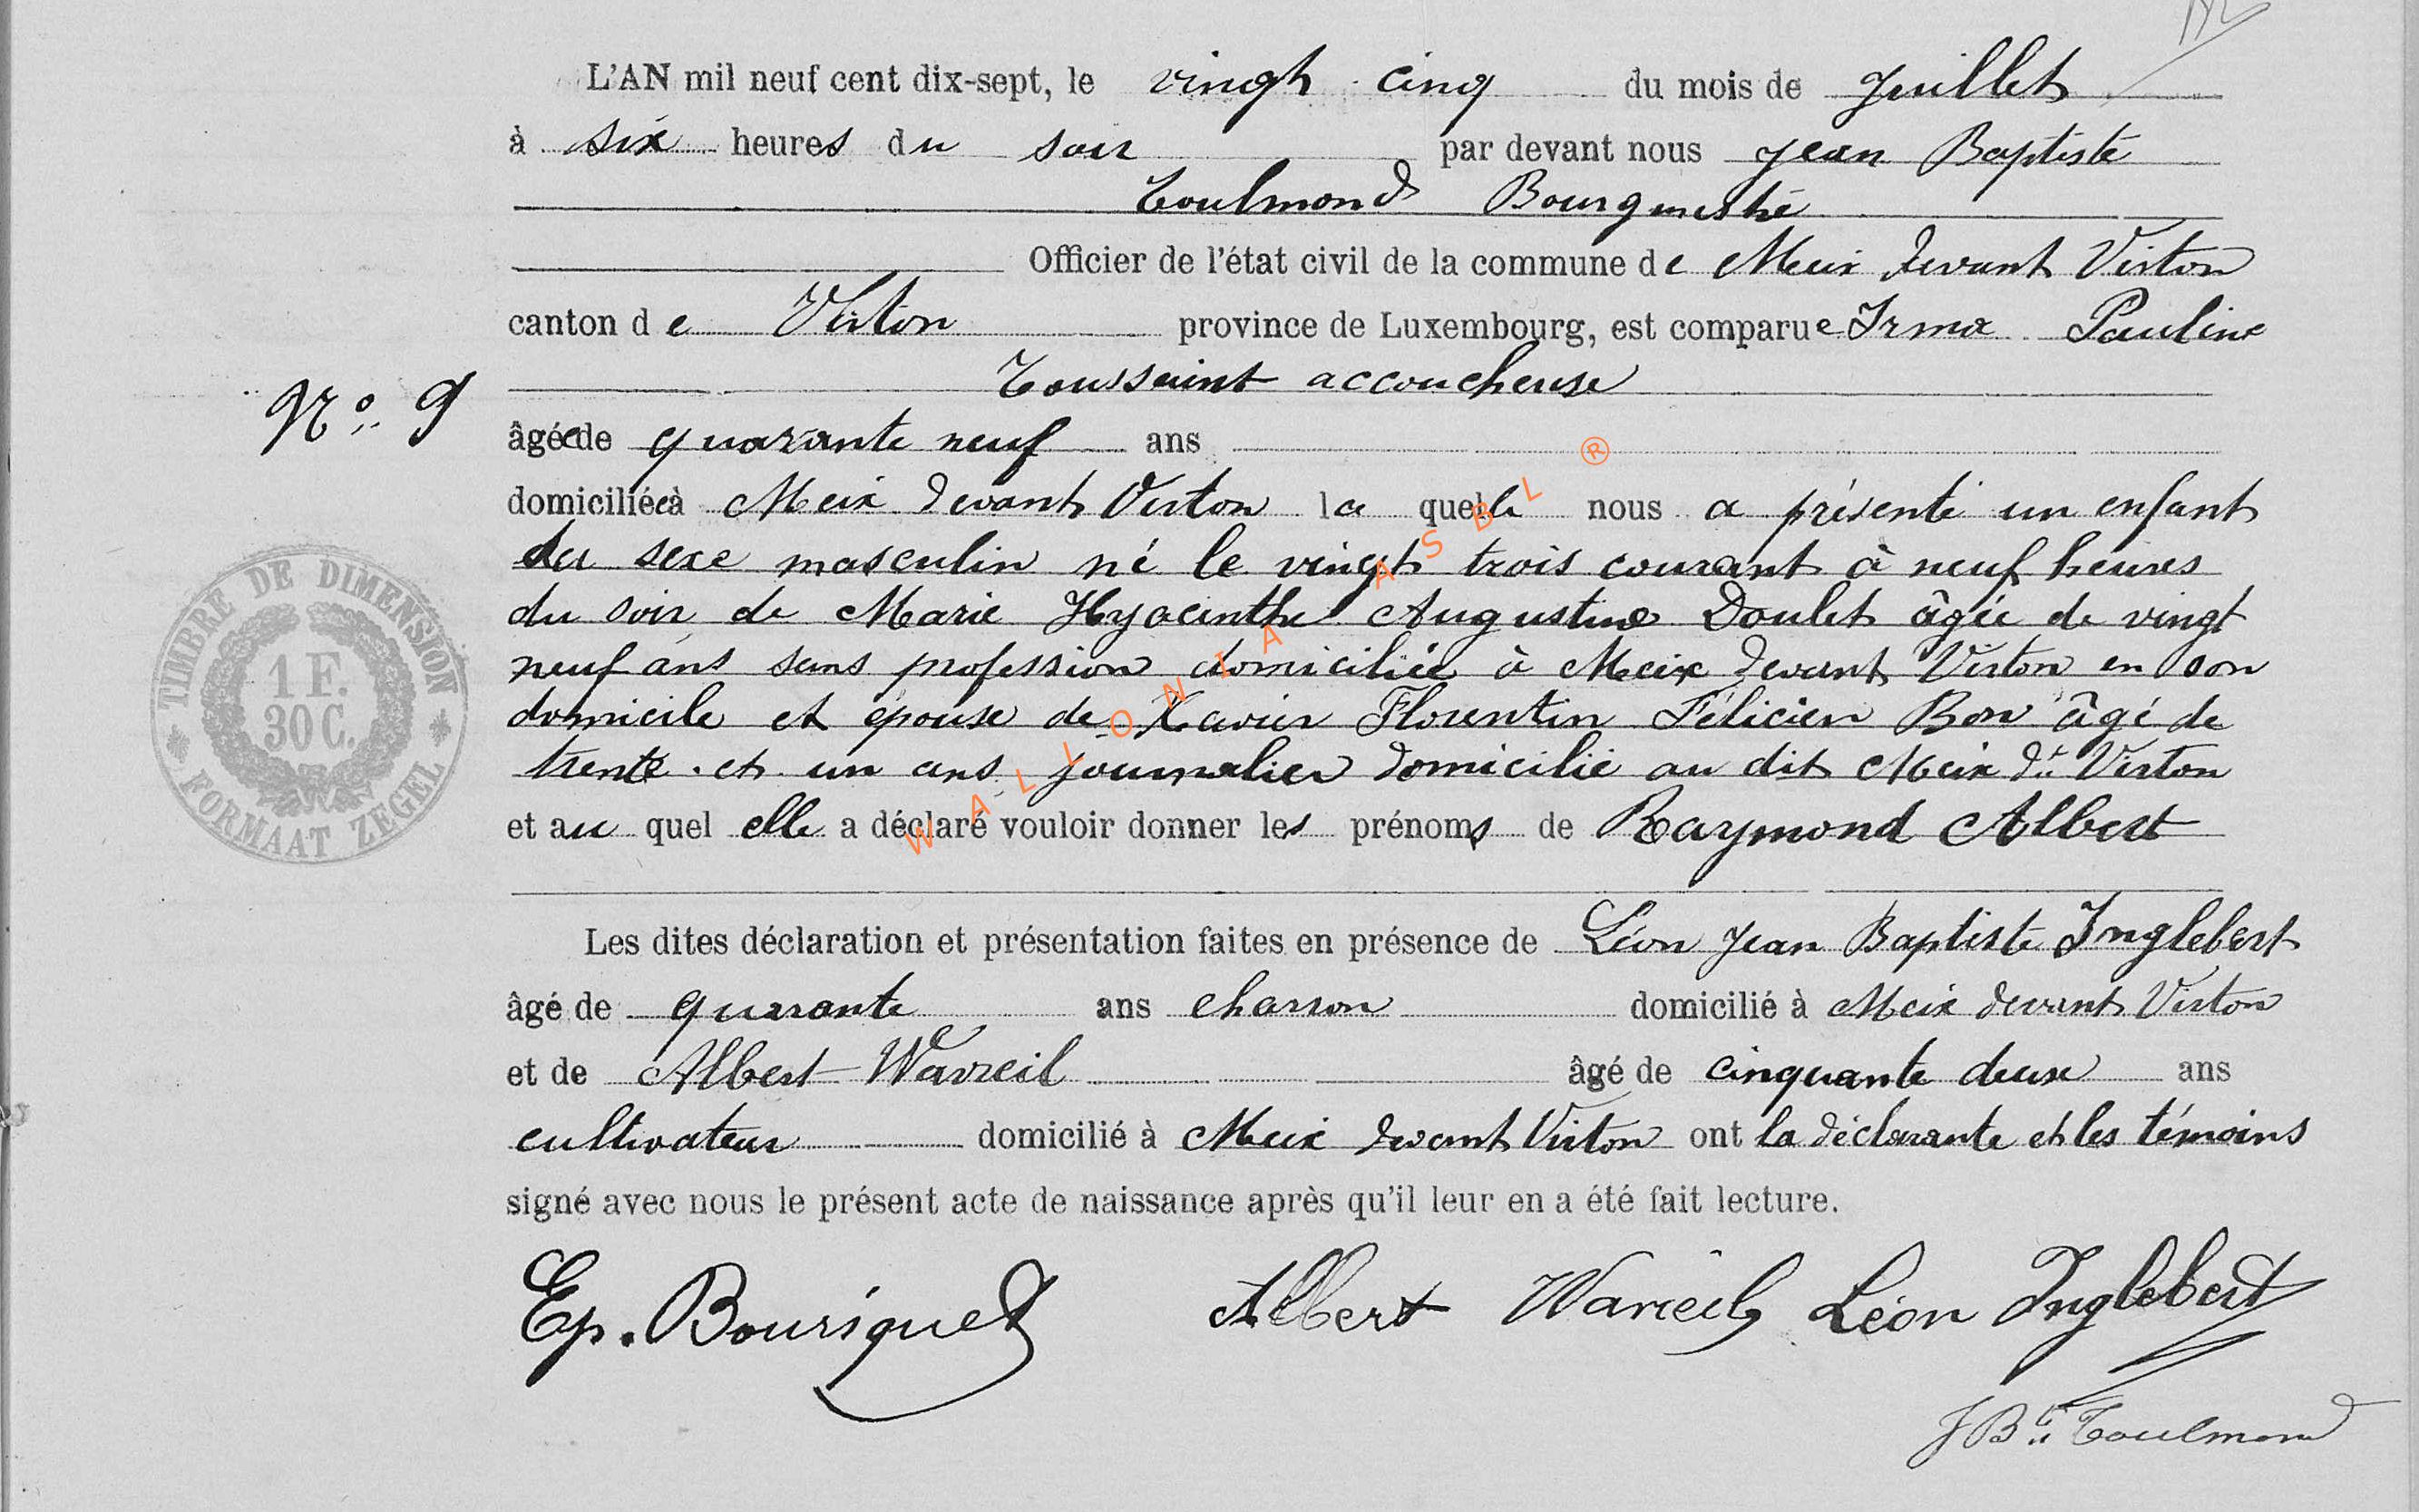 L'AN mil neuf cent dix-sept, le vingt cinq du mois de Juillet
à six heures du soir par devant nous Jean Baptiste
Toulmond Bourgmestre
Officier de l'état civil de la commune de Meix devant Virton
canton de Virton province de Luxembourg, est comparue Irma Pauline
Toussaint accoucheuse
N° 9
âgée de quarante neuf ans
domiciliée à Meix devant Virton la quelle nous a présenté un enfant
du sexe masculin né le vingt trois courant à neuf heures
du soir de Marie Hyacinthe Augustine Doulet âgée de vingt
neuf ans sans profession domiciliée à Meix devant Virton en son
domicile et épouse de Xavier Florentin Félicien Bon âgé de
trente et un ans journalier domicilié au dit Meix dt Virton
et au quel elle a déclaré vouloir donner les prénoms de Raymond Albert
Les dites déclaration et présentation faites en présence de Léon Jean Baptiste Inglebert
âgé de quarante ans charron domicilié à Meix devant Virton
et de Albert Wavreil âgé de cinquante deux ans
cultivateur domicilié à Meix devant Virton ont la déclarante et les témoins
signé avec nous le présent acte de naissance après qu'il leur en a été fait lecture.
Ep. Bouriquet Albert Wavreil Léon Inglebert
J Bte Toulmond
TIMBRE DE DIMENSION
1 F.
30 C.
FORMAAT ZEGEL
WALLONIA ASBL ®